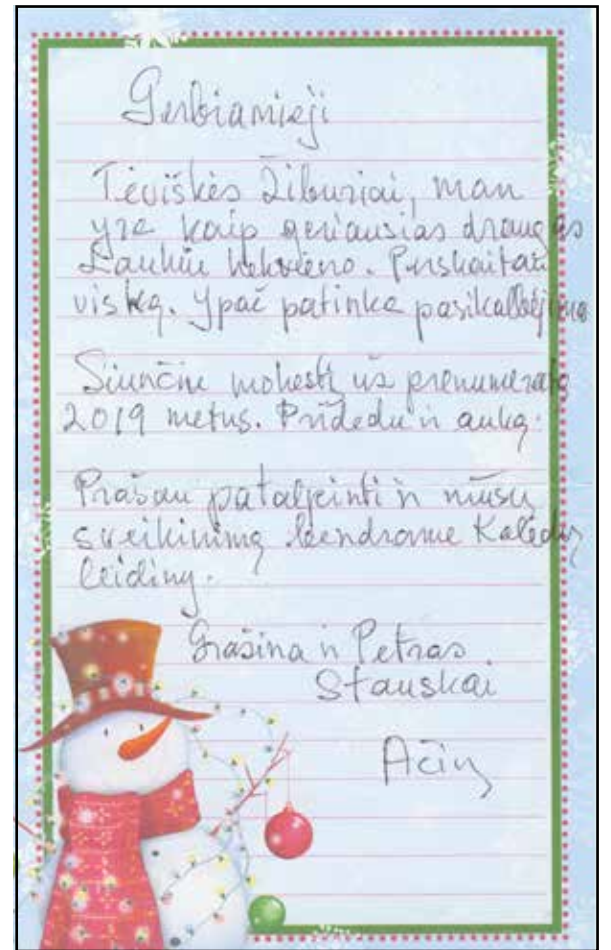 Gerbiamieji
Tėviškės Žiburiai, man
yra kaip geriausias draugas
Laukiu kekvieno. Perskaitau
viską. Ypač patinka pasikalbėjima
Siunčiu mokestį už prenumeratą
2019 metus. Pridedu ir auką.
Prašau patalpinti ir mūsų
sveikinimą bendrame Kalėdų
leidiny.
Gražina ir Petras
Stauskai
Ačiu